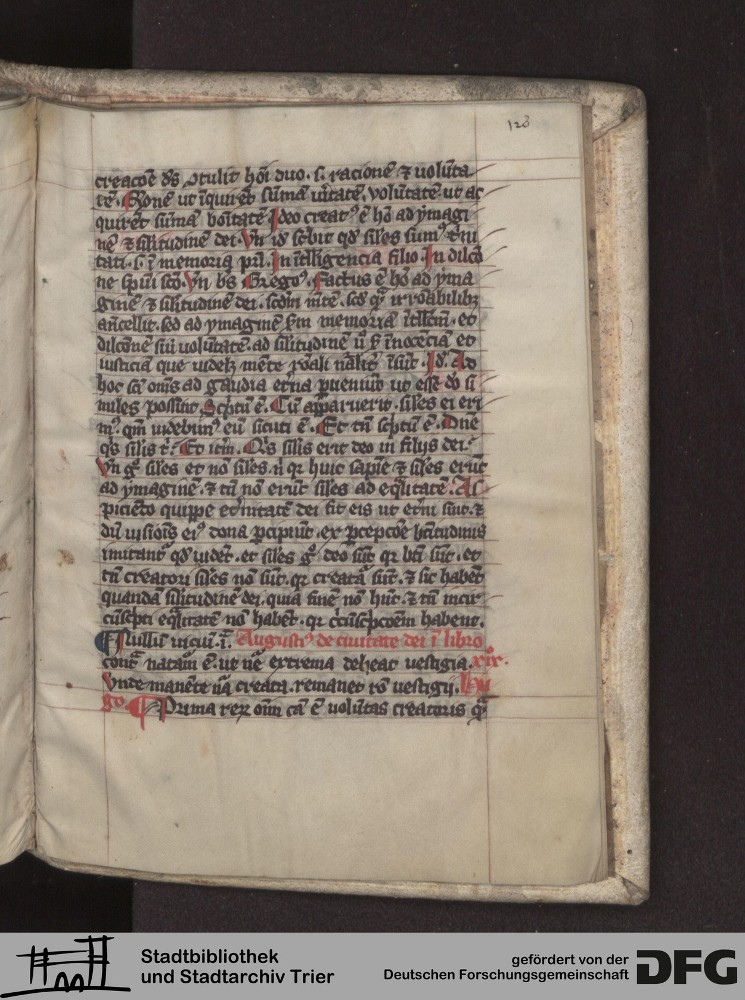 123
creacōe ds ꝯtulit hōi duo. s. racionē ⁊ uolūta
tē. Rōnē ut īquirēt sūmā uītatē, voluntatē ut ac
quirēt sūmā bonitatē Ideo creatꝰ ē hō ad ymagi
nē ⁊ silitudinē dei. Vn̄
tati. s. ī memoria pri. In ītelligencia filio. In dilcō
ne spūi scō. Vn̄ bs Gregoꝰ. Factus ē hō ad yma
ginē ⁊ silitudinē dei. scdm mētē.
ancellit. sed ad ymaginē memoriā et
dilcōnē siū voluntatē. ad silitudinē īnocēciā et
iusticiā que uidelz mēte
hoc ad gaudia etna
miles possint Scptū ē. Cū apparuerit. siles ei eri
mꝰ. qm̄ uidebimꝰ eū sicuti ē. Et tn̄ scptū ē. Dne
qs silis t̄. Et itm̄. Qs silis erit deo in filijs dei.
Vn̄ gͦ siles et nō siles. qr huic sapīe ⁊ siles erūt
ad ymaginē. ⁊ tn̄ nō erūt siles ad eqlitatē. As
piciēdo quippe etnitatē dei fit eis ut etni sint. ⁊
dū uisiois eiꝰ dona pcipiūt. ex pcepcōe btitudinis
imitantᷓ qd uidēt. et siles gͦ deo sūt qr bti sūt. et
tn̄ creatori siles nō sūt. qr creatā sūt. ⁊ sic habēt
quandā silitudinē dei. quia finē nō hnt. ⁊ tn̄ incir
cūscpti eqlitatē nō habēt. qr cͬcūscpcoem habent.
Nullum uiciū. ī. Augustiꝰ de ciuitate dei ī libro
contᵃ naturā ē. ut nē extrema deleat uestigia. xix.
Vnde manēte nā creata. remanet uestigiū. Hu
go. Prima reꝝ oīm cā ē uolūtas creatoris qᷓ
Stadtbibliothek
und Stadtarchiv Trier
gefördert von der
Deutschen Forschungsgemeinschaft
DFG